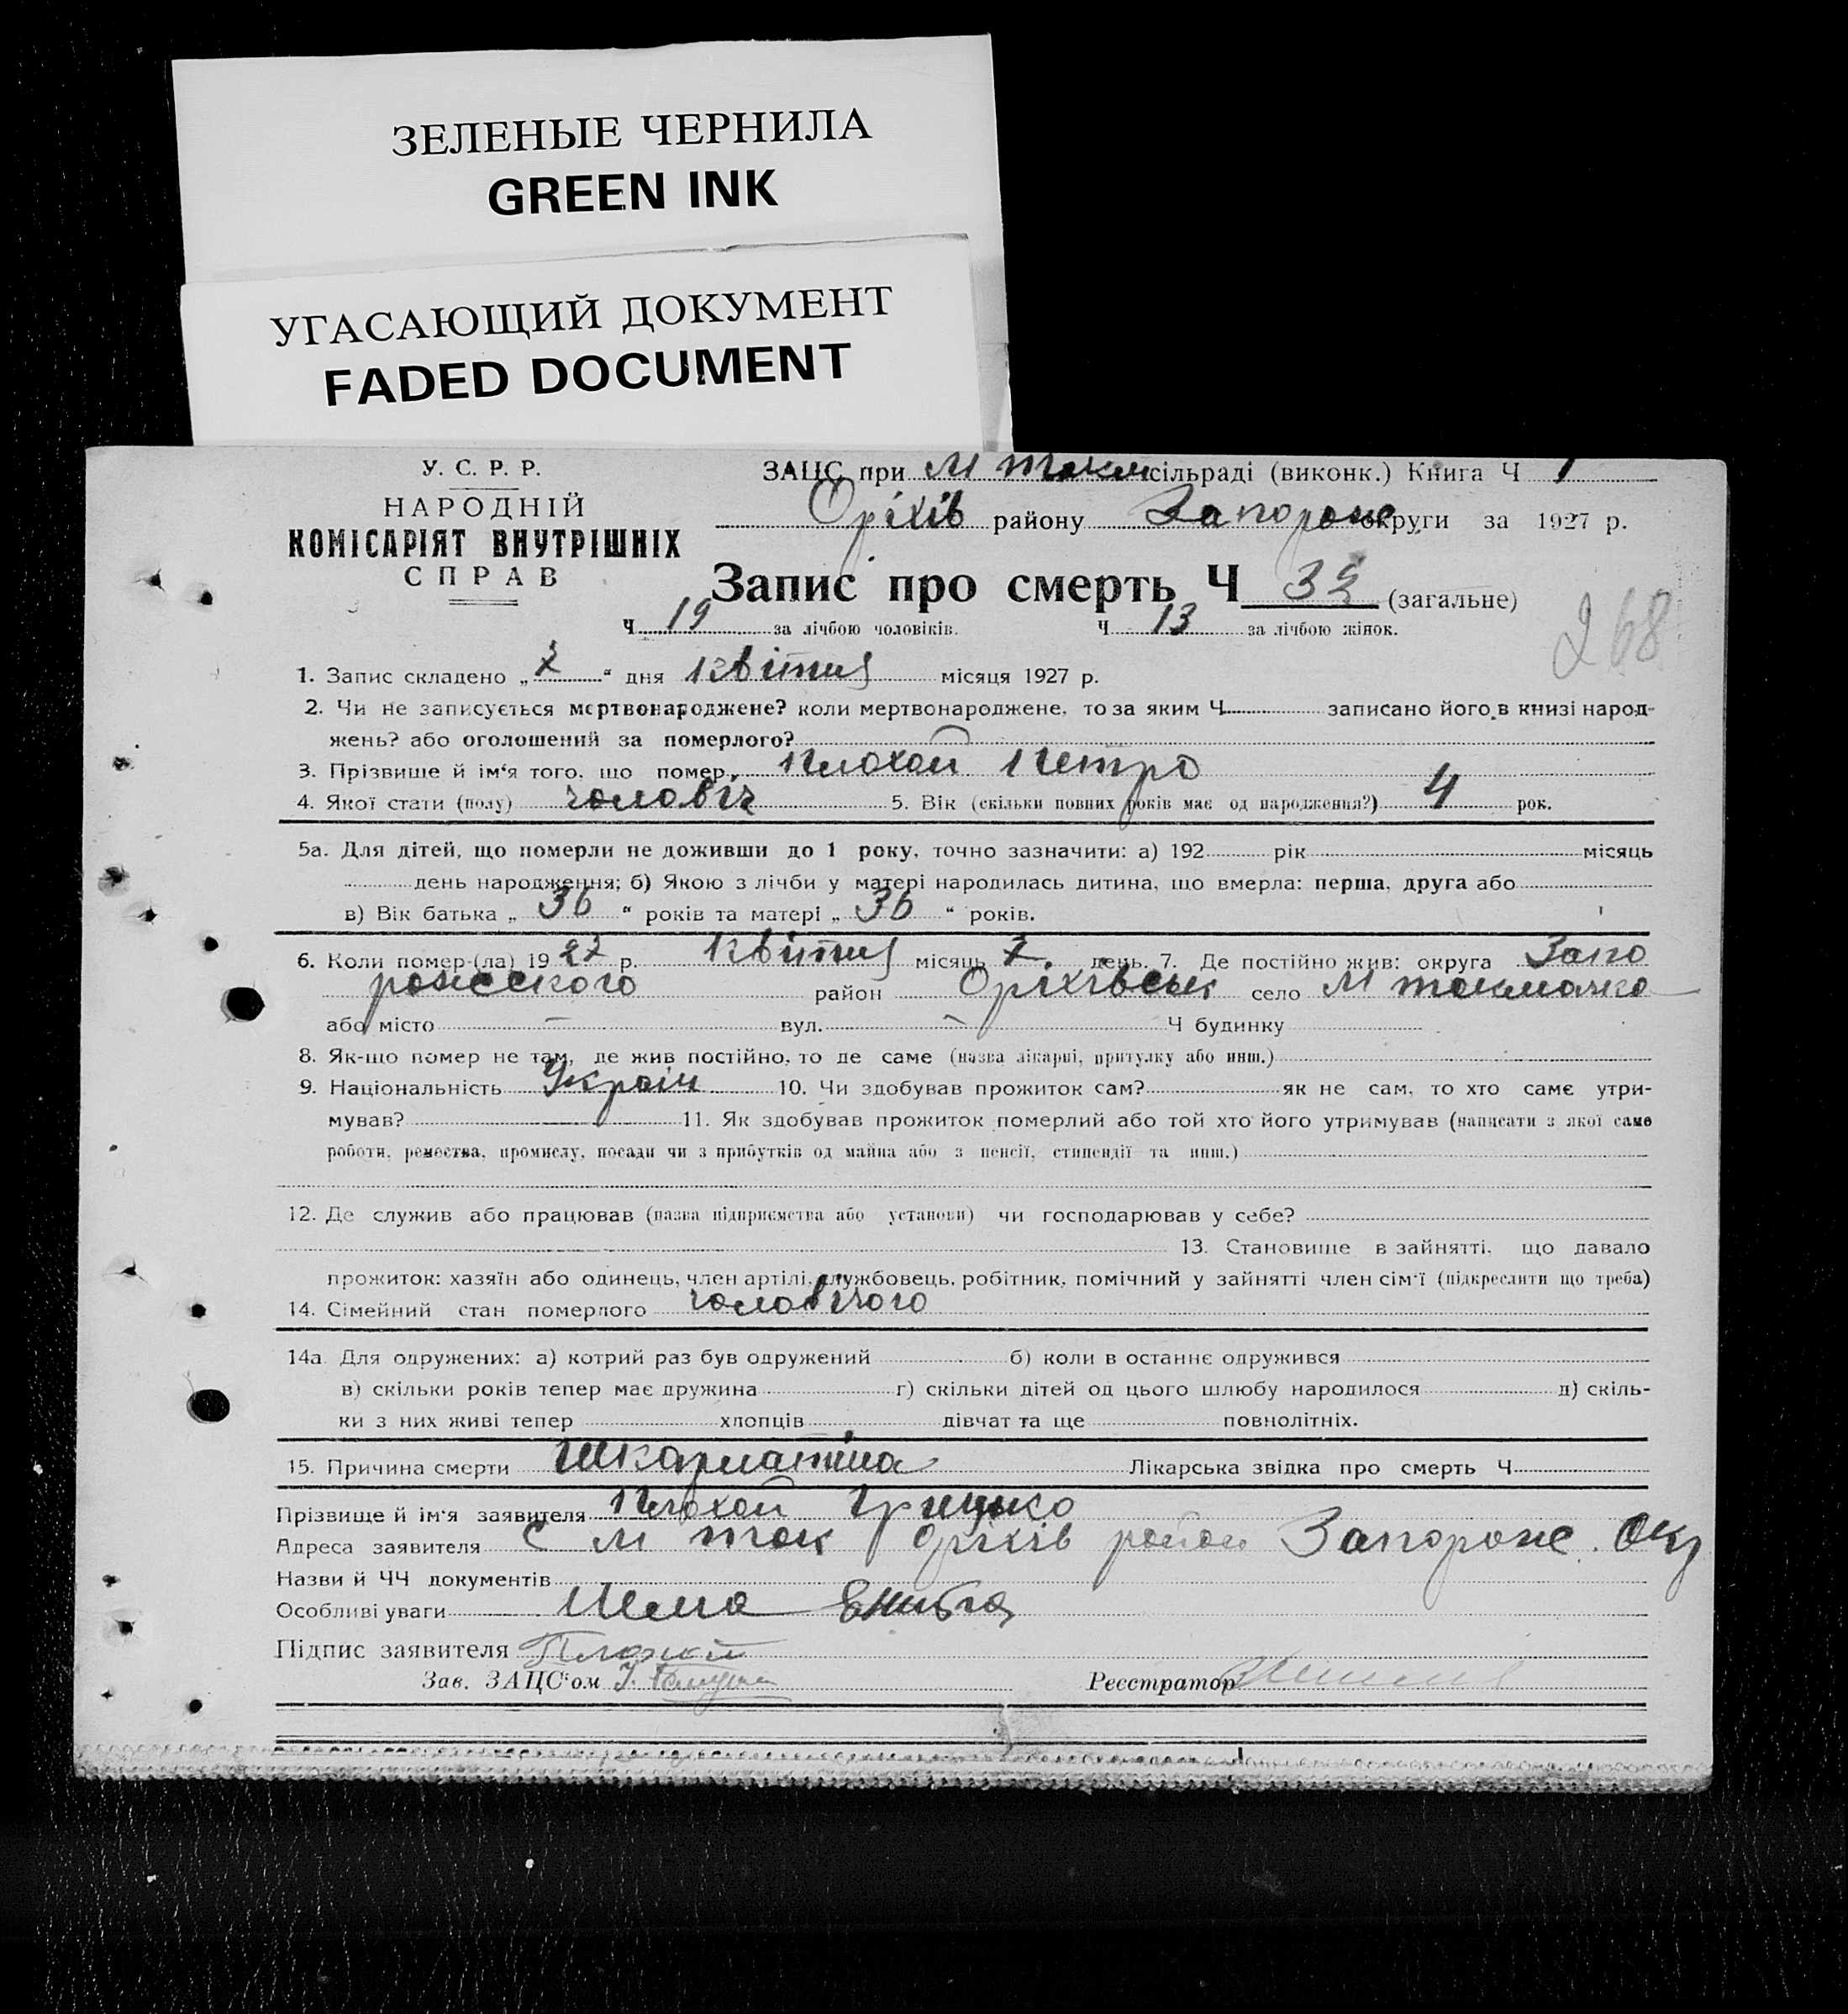 ЗЕЛЕНЫЕ ЧЕРНИЛА
GREEN INK
УГАСАЮЩИЙ ДОКУМЕНТ
FADED DOCUMENT
У. С. Р. Р.
НАРОДНІЙ
КОМІСАРІЯТ ВНУТРІШНІХ
СПРАВ
ЗАЦС при М Токм сільраді (виконк.) Книга Ч 1
Оріхів району Запорож округи за 1927 р.
Запис про смерть Ч (загальне)
Ч 19 за лічбою чоловіків. Ч 13 за лічбою жінок.
268
1. Запис складено „ 7 “ дня квітня місяця 1927 р.
2. Чи не записується мертвонароджене? коли мертвонароджене, то за яким Ч записано його в книзі народ-
жень? або оголошений за померлого?
3. Прізвище й ім‘я того, що помер, Плохой Петро
4. Якої стати (полу) чоловіч 5. Вік (скільки повних років має од народження?) 4 рок.
5а. Для дітей, що померли не доживши до 1 року, точно зазначити: а) 192 рік місяць
день народження; б) Якою з лічби у матері народилась дитина, що вмерла: перша, друга або
в) Вік батька „ 36 “ років та матері „ 36 “ років.
6. Коли помер-(ла) 1927 р. квітня місяць 7. день. 7. Де постійно жив: округа Запо
рожского район Оріхівськ село М Токмачка
або місто — вул. — Ч будинку
8. Як-що помер не там, де жив постійно, то де саме (назва лікарні, притулку або инш.)
9. Національність Україн 10. Чи здобував прожиток сам? як не сам, то хто саме утри-
мував? 11. Як здобував прожиток померлий або той хто його утримував (написати з якої саме
роботи, ремества, промислу, посади чи з прибутків од майна або з пенсії, стипендії та инш.)
12. Де служив або працював (назва підприємства або установи) чи господарював у себе?
13. Становище в зайнятті, що давало
прожиток: хазяїн або одинець, член артілі, службовець, робітник, помічний у зайнятті член сім‘ї (підкреслити що треба)
14. Сімейний стан померлого чоловічого
14а. Для одружених: а) котрий раз був одружений б) коли в останнє одружився
в) скільки років тепер має дружина г) скільки дітей од цього шлюбу народилося д) скіль-
ки з них живі тепер хлопців дівчат та ще повнолітніх.
15. Причина смерти Шкарлатіна Лікарська звідка про смерть Ч
Прізвище й ім‘я заявителя Плохой Грицько
Адреса заявителя С М Ток Оріхів район Запорож. Окр
Назви й ЧЧ документів
Особливі уваги
Підпис заявителя Плохий
Зав. ЗАЦС‘ом
Реєстратор